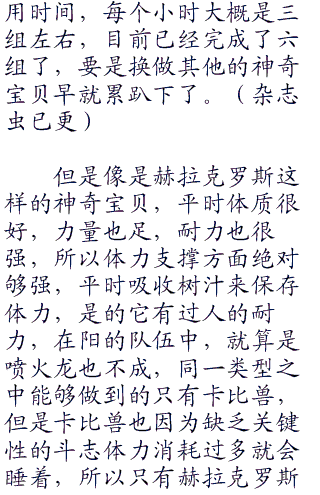 用时间，每个小时大概是三
组左右，目前已经完成了六
组了，要是换做其他的神奇
宝贝早就累趴下了。（杂志
虫已更）
但是像是赫拉克罗斯这
样的神奇宝贝，平时体质很
好，力量也足，耐力也很
强，所以体力支撑方面绝对
够强，平时吸收树汁来保存
体力，是的它有过人的耐
力，在阳的队伍中，就算是
喷火龙也不成，同一类型之
中能够做到的只有卡比兽，
但是卡比兽也因为缺乏关键
性的斗志体力消耗过多就会
睡着，所以只有赫拉克罗斯